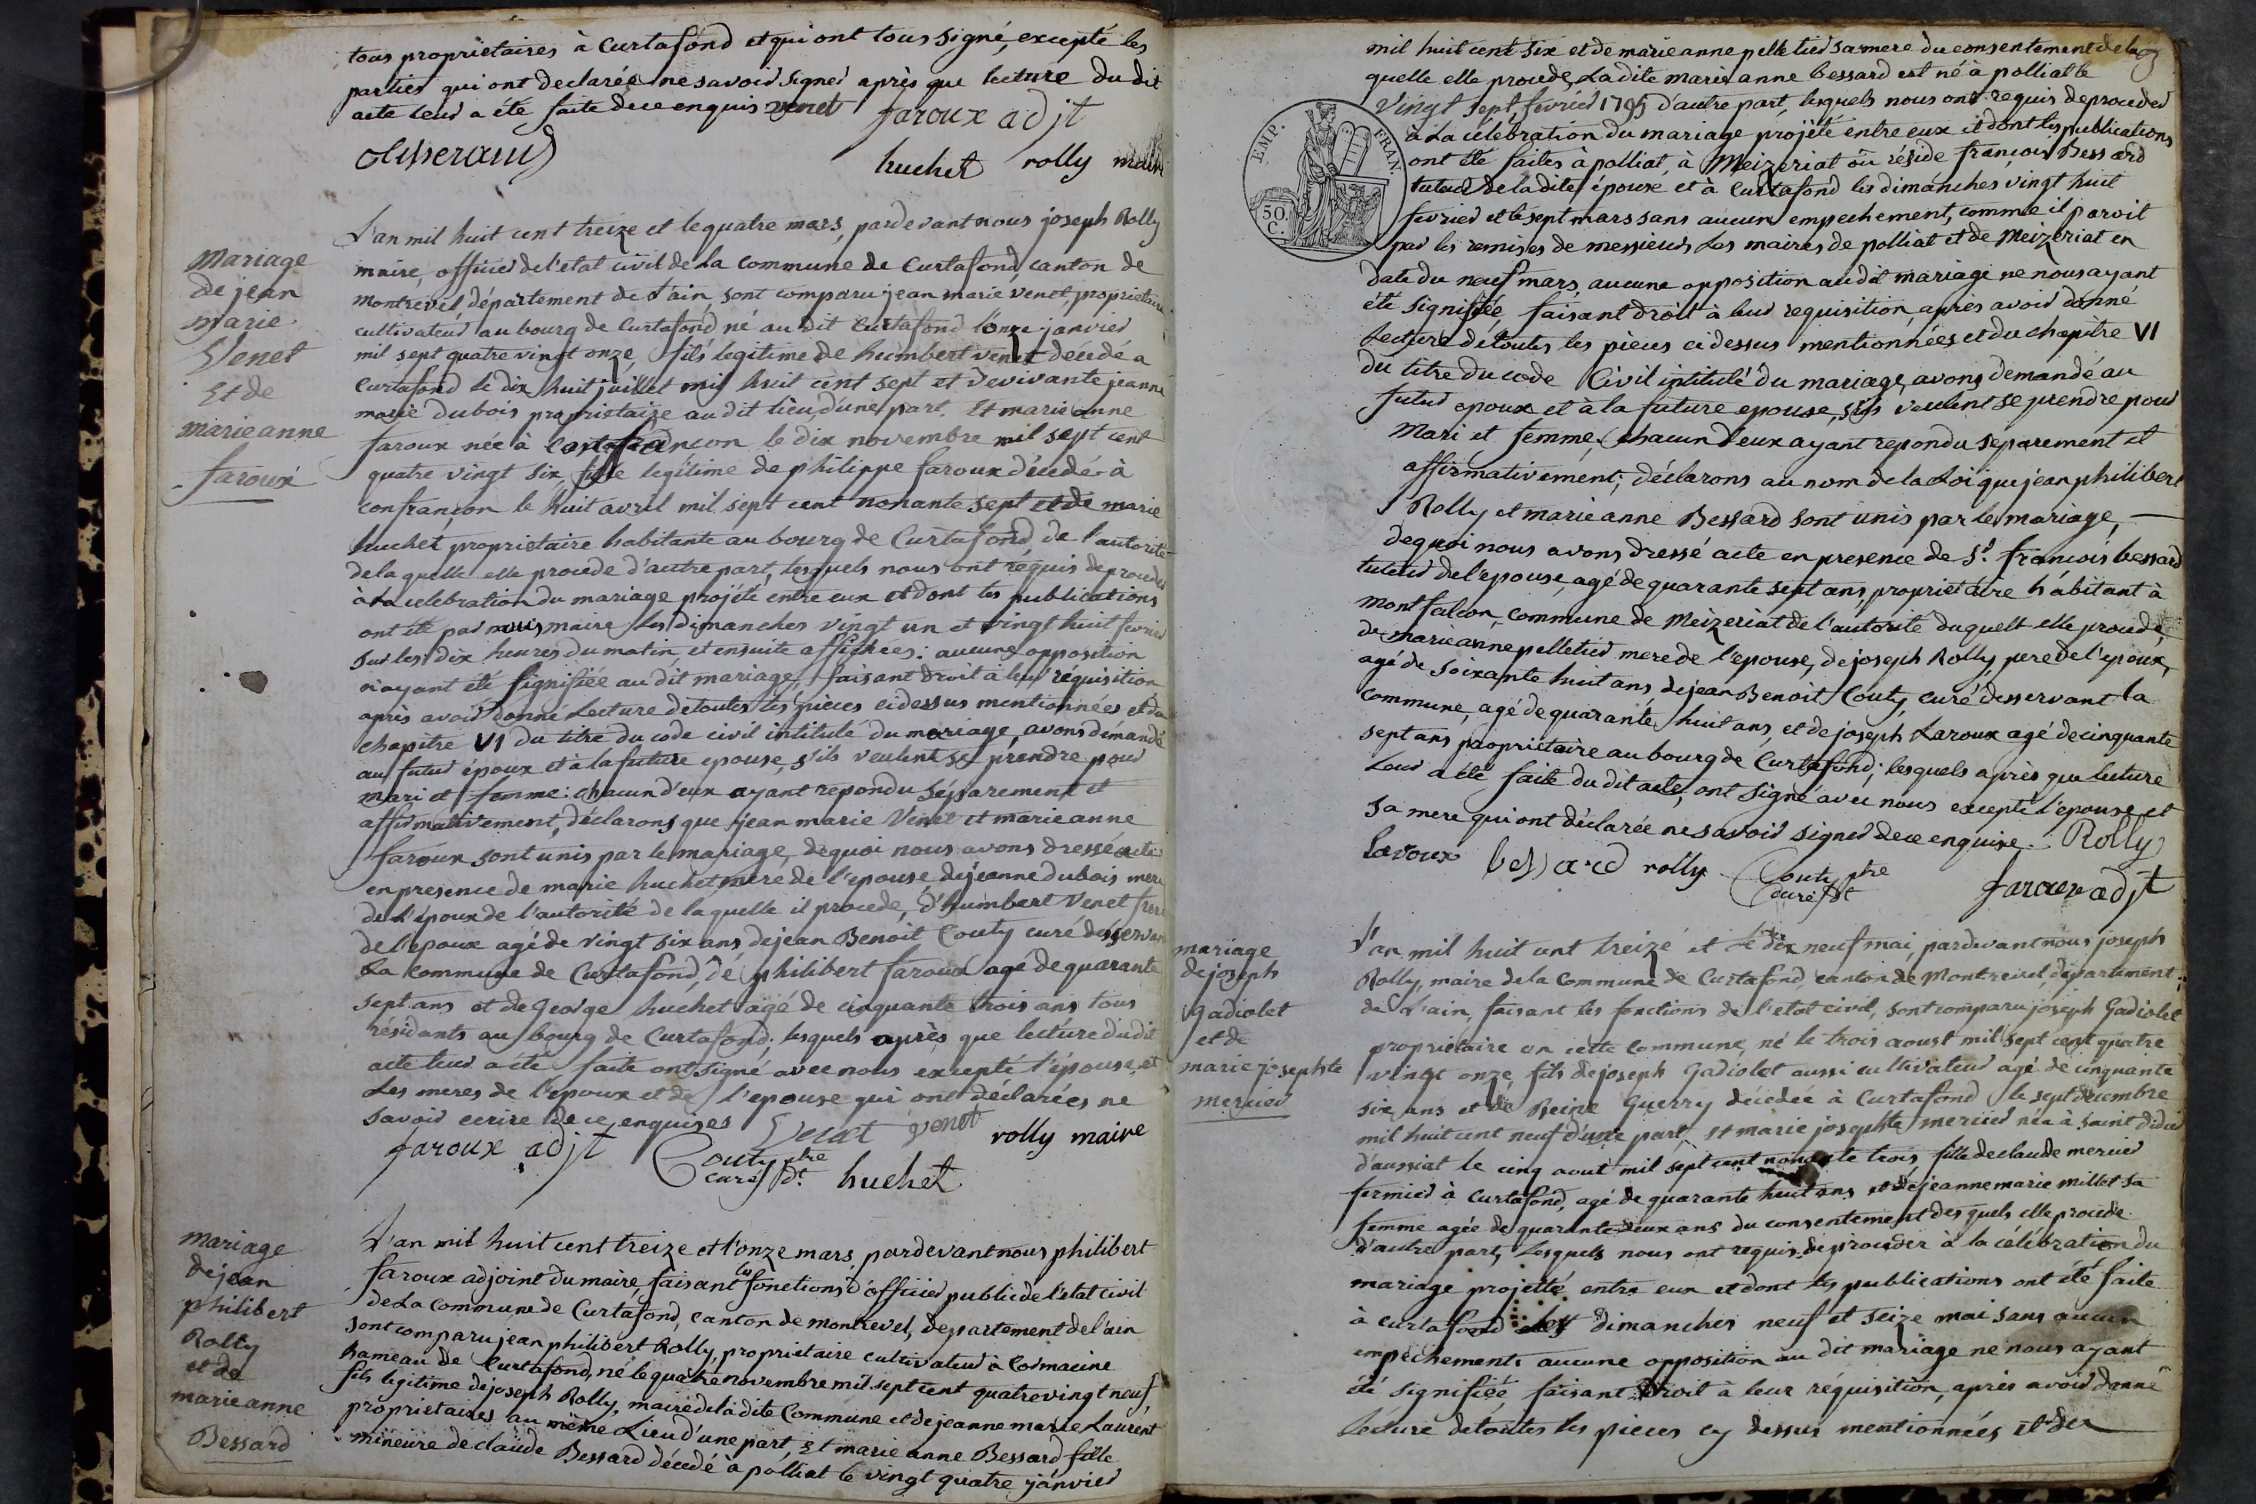 tous propriétaires à Curtafond et qui ont tous signé, excepté les
parties qui ont declarée ne savoir signer après que lecture du dit
acte leur a été faite de ce enquis venet faroux adjt
huchet rolly maire
Mariage
de jean
marie
Venet
Et de
marie anne
faroux
L'an mil huit cent treize et le quatre mars, pardevant nous joseph Rolly
maire, officier de l'etat civil de La Commune de Curtafond, canton de
Montrevel, département de L'ain, sont comparu jean marie venet, proprietaire
cultivateur au bourg de Curtafond né au dit Curtafond l'onze janvier
mil sept quatre vingt onze, fils legitime de humbert venet décédé a
Curtafond le dix huit juillet mil huit cent sept et de vivante jeanne
marie dubois proprietaire au dit lieu d'une part. Et marie anne
faroux née à Confrançon le dix novembre mil sept cent
quatre vingt six, fille legitime de philippe faroux décédé à
confrançon le huit avril mil sept cent nonante sept et de marie
huchet proprietaire habitante au bourg de Curtafond, de l'autorité
de la quelle elle procede d'autre part, lesquels nous ont requis de proceder
à La celebration du mariage projété entre eux et dont les publications
ont été par nous, maire les dimanches vingt un et vingt huit fevrier
sur les dix heures du matin et ensuite affichées: aucune opposition
n'ayant été signifiée au dit mariage, faisant droit à leur réquisition
après avoir donné Lecture de toutes les pièces cidessus mentionnées et du
chapitre VI du titre du code civil intitulé du mariage, avons demandé
au futur époux et à la future epouse, s'ils veulent se prendre pour
mari et femme: chacun d'eux ayant repondu séparement et
affirmativement, déclarons que jean marie Venet et marie anne
faroux sont unis par le mariage, dequoi nous avons dressé acte
en presence de marie huchet mere de l'epouse de jeanne dubois mere
de L'époux de l'autorité de laquelle il procede, d'humbert Venet frere
de l'epoux agé de vingt six ans, de jean Benoit Couty curé desservant
La Commune de Curtafond, de philibert faroux agé de quarante
sept ans et de George huchet agé de cinquante trois ans tous
résidants au bourg de Curtafond; lesquels après que lecture du dit
acte leur a été faite ont signé avec nous excepté l'épouse, et
Les meres de l'epoux et de l'epouse qui ont déclarées ne
savoir ecrire de ce enquises Venet venet rolly maire
faroux adjt Couty ptre
curé dt huchet
mariage
de jean
philibert
Rolly
et de
marie anne
Bessard
L'an mil huit cent treize et l'onze mars, pardevant nous philibert
faroux adjoint du maire, faisant les fonctions d'officier public de l'etat civil
de La commune de Curtafond, canton de montrevel, departement de l'ain
sont comparu jean philibert Rolly, proprietaire cultivateur à Cormacine
hameau de Curtafond, né le quatre novembre mil sept cent quatre vingt neuf,
fils legitime de joseph Rolly, maire de la dite Commune et de jeanne marie Laurent
proprietaires au même Lieu d'une part, Et marie anne Bessard fille
mineure de claude Bessard décédé à polliat le vingt quatre janvier
mil huit cent six et de marie anne pelletier sa mere du consentement de la
quelle elle procede, La dite marie anne bessard est né à polliat le
vingt sept fevrier 1795 d'autre part, lesquels nous ont requis de proceder
à La célébration du mariage projété entre eux et dont les publications
ont été faites à polliat, à Meizeriat où réside françois Bessard
tuteur de la dite épouse et à Curtafond les dimanches vingt huit
fevrier et le sept mars sans aucun empechement, comme il paroit
par les remises de messieurs Les maires de polliat et de Meizeriat en
date du neuf mars, aucune opposition au dit mariage ne nous ayant
été signifiée, faisant droit à leur requisition, après avoir donné
Lecture de toutes les pièces cidessus mentionnées et du chapitre VI
du titre du code Civil intitulé du mariage, avons demandé au
futur epoux et à la future epouse, s'ils veulent se prendre pour
Mari et femme; chacun d'eux ayant repondu séparement et
affirmativement; déclarons au nom de la Loi que jean philibert
Rolly et marie anne Bessard sont unis par le mariage,
dequoi nous avons dressé acte en presence de Sr. françois bessard
tuteur de l'epouse, agé de quarante sept ans, proprietaire habitant à
montfalcon, commune de Meizeriat de l'autorité duquelt elle procede,
de marie anne pelletier mere de l'epouse, de joseph Rolly, pere de l'epoux,
agé de soixante huit ans, de jean Benoit Couty, curé desservant la
commune, agé de quarante huit ans, et de joseph Laroux agé de cinquante
sept ans propriétaire au bourg de Curtafond; lesquels après que lecture
Leur a été faite du dit acte, ont signé avec nous excepté l'epouse et
sa mere qui ont déclarée ne savoir signer de ce enquise. Rolly
laroux bessard rolly Couty ptre
curé dt faroux adjt
EMP. FRAN.
50.
C.
mariage
de joseph
Gadiolet
et de
marie josephte
mercier
L'an mil huit cent treize et Le dix neuf mai, pardevant nous joseph
Rolly, maire de la Commune de Curtafond, canton de Montrevel, département
de L'ain, faisant les fonctions de l'etat civil, sont comparu joseph Gadiolet
propriétaire en cette commune, né le trois aoust mil sept cent quatre
vingt onze, fils de joseph Gadiolet aussi cultivateur agé de cinquante
six ans et de Reine Guerry décédée à Curtafond le sept décembre
mil huit cent neuf d'une part, Et marie josephte mercier née à saint didier
d'aussiat le cinq aout mil sept cent nonante trois fille de claude mercier
fermier à Curtafond, agé de quarante huit ans et de jeanne marie millet sa
femme agée de quarante deux ans du consentement des quels elle procede
d'autre part, Lesquels nous ont requis de proceder à la célébration du
mariage projetté entre eux et dont les publications ont été faite
à curtafond les dimanches neuf et seize mai sans aucun
empechement aucune opposition au dit mariage ne nous ayant
été signifiée, faisant droit à leur réquisition, après avoir donné
lecture de toutes les pieces cy dessus mentionnées et du